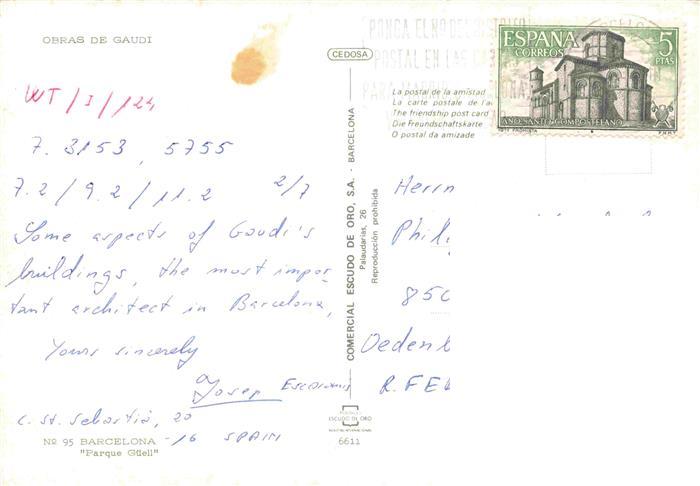 OBRAS DE GAUDI
WT/I/124
7. 3153, 5755
7.2/9.2/11.2 2/7
Some aspects of Gaudi's
buildings, the most impor-
tant architect in Barcelona,
Yours sincerely
Josep
C. St. Sebastià, 20
-16 SPAIN
Nº 95 BARCELONA
"Parque Güell"
CEDOSA
COMERCIAL ESCUDO DE ORO, S.A. - BARCELONA
Palaudarias, 26
Reproducción prohibida
ESCUDO DE ORO
6611
PONGA EL Nº DEL DISTRITO
POSTAL EN LAS
PARA MADRID
La postal de la amistad
La carte postale de l'a
The friendship post card
Die Freundschaftskarte
O postal da amizade
ESPAÑA 5
CORREOS PTAS
AÑO SANTO COMPOSTELANO
FROMISTA F.N.M.T.
Herrn
Phil
850
R.FE